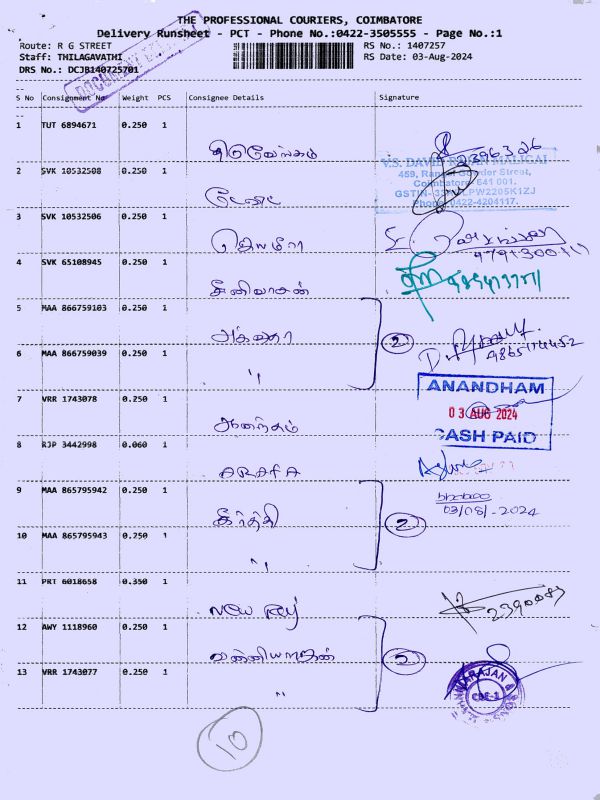 THE PROFESSIONAL COURIERS, COIMBATORE
Delivery Runsheet - PCT - Phone No.:0422-3505555 - Page No.:1
Route: R G STREET RS No.: 1407257
Staff: THILAGAVATHI RS Date: 03-Aug-2024
DRS No.: DCJB140725701
DOCUMENT
S No Consignment No Weight PCS Consignee Details Signature
1 TUT 6894671 0.250 1 திருவேங்கடம்
2396326
2 SVK 10532508 0.250 1 டேவிட்
V.S. DAVID
Street,
Coimbatore 641 001.
Phone: 0422-4204117.
3 SVK 10532506 0.250 1 ஜெயமீரா
4 SVK 65108945 0.250 1 சீனிவாசன்
5 MAA 866759103 0.250 1
2
6 MAA 866759039 0.250 1 "
7 VRR 1743078 0.250 1 ஆனந்தம்
ANANDHAM
03 AUG 2024
CASH PAID
8 RJP 3442998 0.060 1 ARAFA
9 MAA 865795942 0.250 1 கீர்த்தி
03/08/-2024
2
10 MAA 865795943 0.250 1 "
11 PRT 6018658 0.350 1
12 AWY 1118960 0.250 1
2
13 VRR 1743077 0.250 1 "
CBE-1
10